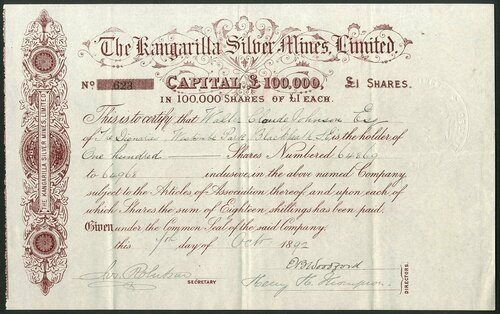 The Kangarilla Silver Mines, Limited.
No 623 CAPITAL £100,000, £1 SHARES.
IN 100,000 SHARES OF £1 EACH.
This is to certify that Walter Claude Johnson Esq
of Westcombe Park, Blackheath is the holder of
One hundred Shares Numbered 64869
to 64968 inclusive in the above named Company
subject to the Articles of Association thereof, and upon each of
which Shares the sum of Eighteen shillings has been paid.
Given under the Common Seal of the said Company.
this day of Oct 1892
SECRETARY
Henry Thompson
DIRECTORS.
THE KANGARILLA SILVER MINES, LIMITED